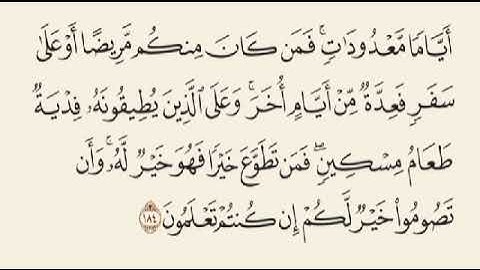 أَيَّامًا مَّعْدُودَٰتٍۚ فَمَن كَانَ مِنكُم مَّرِيضًا أَوْ عَلَىٰ
سَفَرٍ فَعِدَّةٌ مِّنْ أَيَّامٍ أُخَرَۚ وَعَلَى ٱلَّذِينَ يُطِيقُونَهُۥ فِدْيَةٌ
طَعَامُ مِسْكِينٍۖ فَمَن تَطَوَّعَ خَيْرًا فَهُوَ خَيْرٌ لَّهُۥۚ وَأَن
تَصُومُوا۟ خَيْرٌ لَّكُمْ إِن كُنتُمْ تَعْلَمُونَ ١٨٤